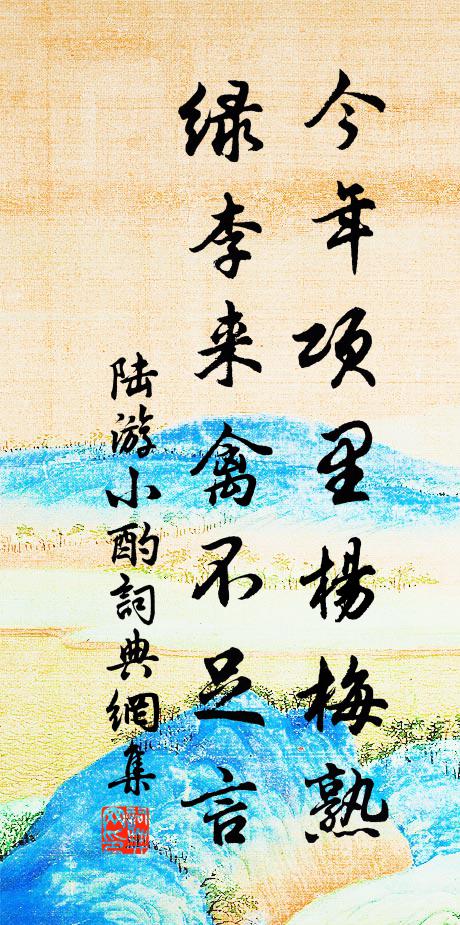 今年项里楊梅熟
绿李来禽不足言
陆游小酌詞典網集